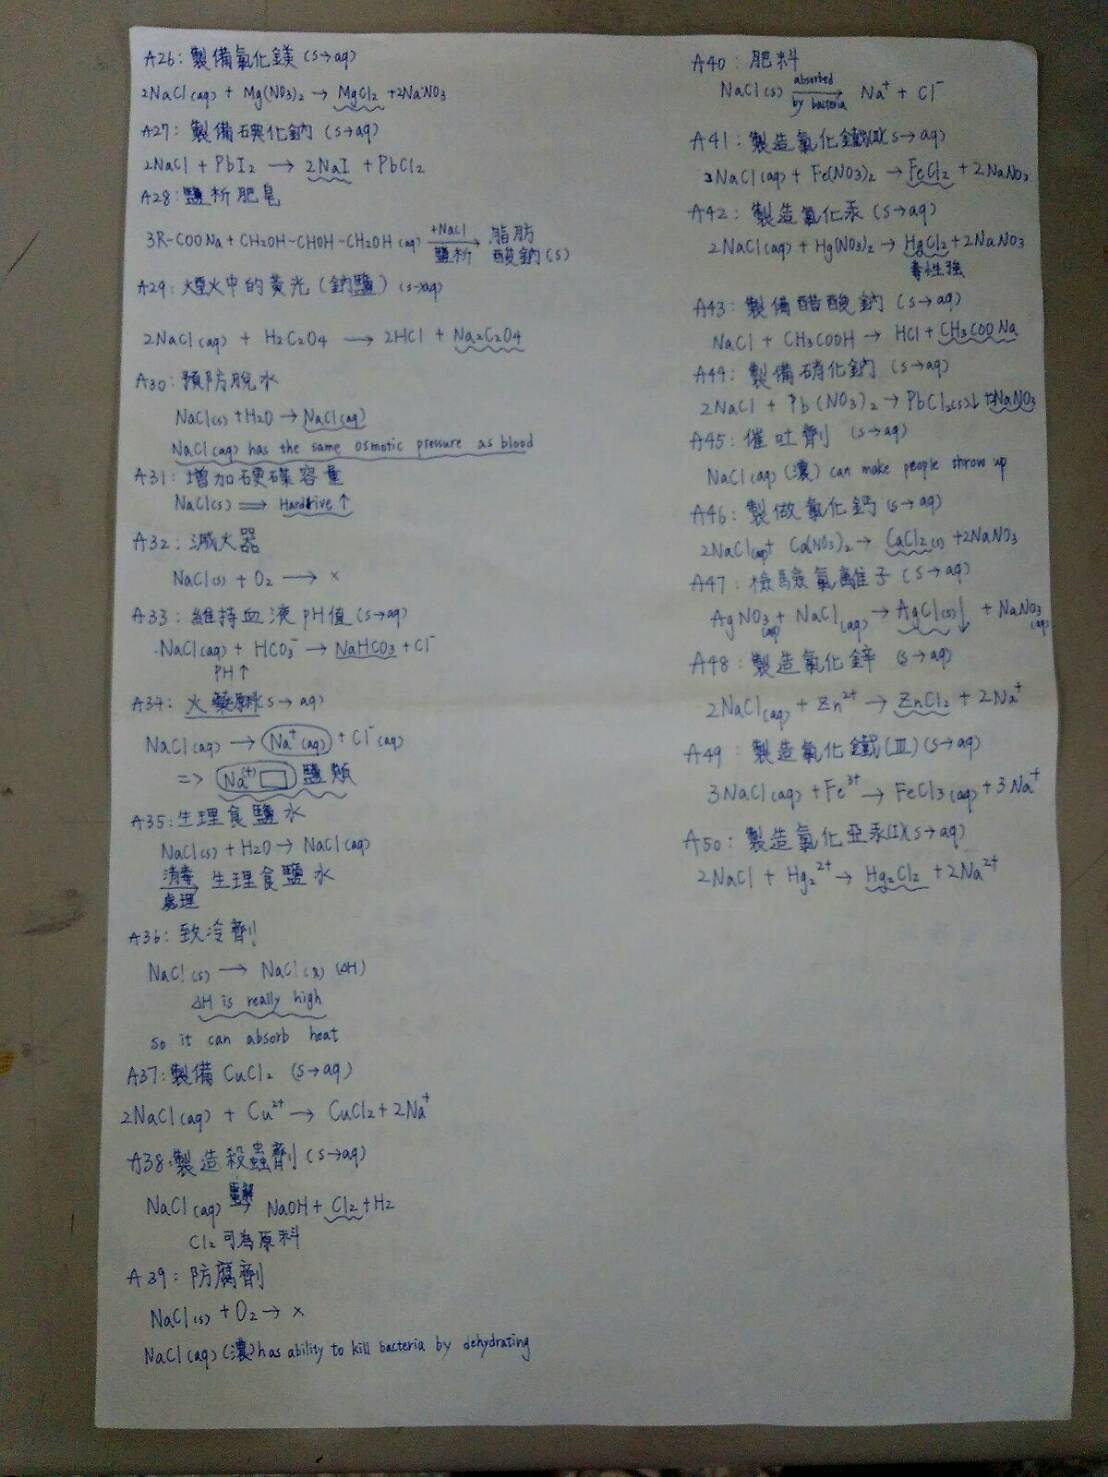 A26: 製備氯化鎂 (s→aq)
2NaCl(aq) + Mg(NO3)2 → MgCl2 + 2NaNO3
A27: 製備碘化鈉 (s→aq)
2NaCl + PbI2 → 2NaI + PbCl2
A28: 鹽析肥皂
3R-COONa + CH2OH-CHOH-CH2OH (aq) +NaCl → 鹽析 脂肪酸鈉(s)
A29: 煙火中的黃光 (鈉鹽) (s→aq)
2NaCl(aq) + H2C2O4 → 2HCl + Na2C2O4
A30: 預防脫水
NaCl(s) + H2O → NaCl(aq)
NaCl(aq) has the same osmotic pressure as blood
A31: 增加硬碟容量
NaCl(s) ⟹ Hardrive ↑
A32: 滅火器
NaCl(s) + O2 → ×
A33: 維持血液 pH值 (s→aq)
NaCl(aq) + HCO3⁻ → NaHCO3 + Cl⁻
PH↑
A34: 火藥原料 (s→aq)
NaCl(aq) → Na⁺(aq) + Cl⁻(aq)
=> Na⁽⁺⁾□ 鹽類
A35: 生理食鹽水
NaCl(s) + H2O → NaCl(aq)
消毒 處理 → 生理食鹽水
A36: 致冷劑!
NaCl(s) → NaCl(l) (ΔH)
ΔH is really high
so it can absorb heat
A37: 製備 CuCl2 (s→aq)
2NaCl(aq) + Cu²⁺ → CuCl2 + 2Na⁺
A38: 製造殺蟲劑 (s→aq)
NaCl(aq) 電解 → NaOH + Cl2 + H2
Cl2 可為原料
A39: 防腐劑
NaCl(s) + O2 → ×
NaCl(aq) (濃) has ability to kill bacteria by dehydrating
A40: 肥料
NaCl(s) absorbed → by bacteria Na⁺ + Cl⁻
A41: 製造氯化鐵(II) (s→aq)
2NaCl(aq) + Fe(NO3)2 → FeCl2 + 2NaNO3
A42: 製造氯化汞 (s→aq)
2NaCl(aq) + Hg(NO3)2 → HgCl2 + 2NaNO3
毒性強
A43: 製備醋酸鈉 (s→aq)
NaCl + CH3COOH → HCl + CH3COONa
A44: 製備硝化鈉 (s→aq)
2NaCl + Pb(NO3)2 → PbCl2(s)↓ + 2NaNO3
A45: 催吐劑 (s→aq)
NaCl(aq) (濃) can make people throw up
A46: 製做氯化鈣 (s→aq)
2NaCl(aq) + Ca(NO3)2 → CaCl2(s) + 2NaNO3
A47: 檢驗氯離子 (s→aq)
AgNO3(aq) + NaCl(aq) → AgCl(s)↓ + NaNO3(aq)
A48: 製造氯化鋅 (s→aq)
2NaCl(aq) + Zn²⁺ → ZnCl2 + 2Na⁺
A49: 製造氯化鐵(III) (s→aq)
3NaCl(aq) + Fe³⁺ → FeCl3(aq) + 3Na⁺
A50: 製造氯化亞汞(I) (s→aq)
2NaCl + Hg2²⁺ → Hg2Cl2 + 2Na²⁺